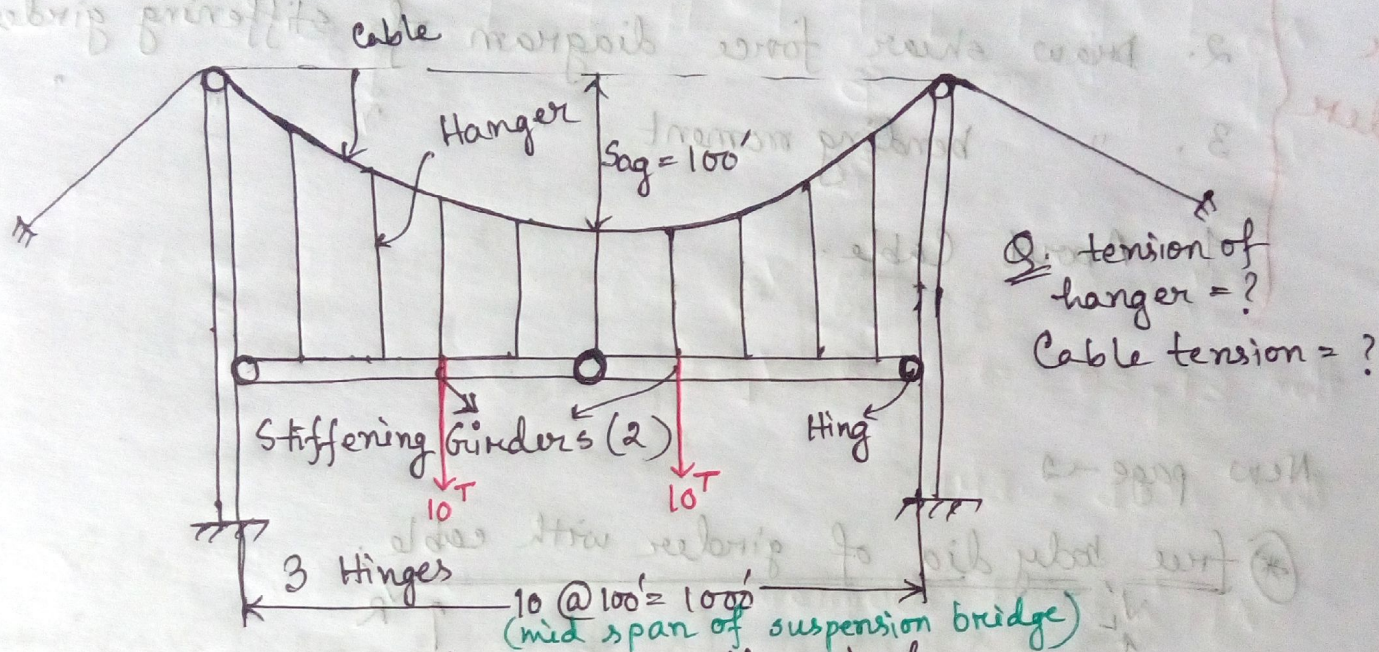 Cable
Hanger
Sag = 100'
Q. tension of
hanger = ?
Cable tension = ?
Stiffening Girders (2)
Hing
10T
10T
3 Hinges
10 @ 100' = 1000'
(mid span of suspension bridge)